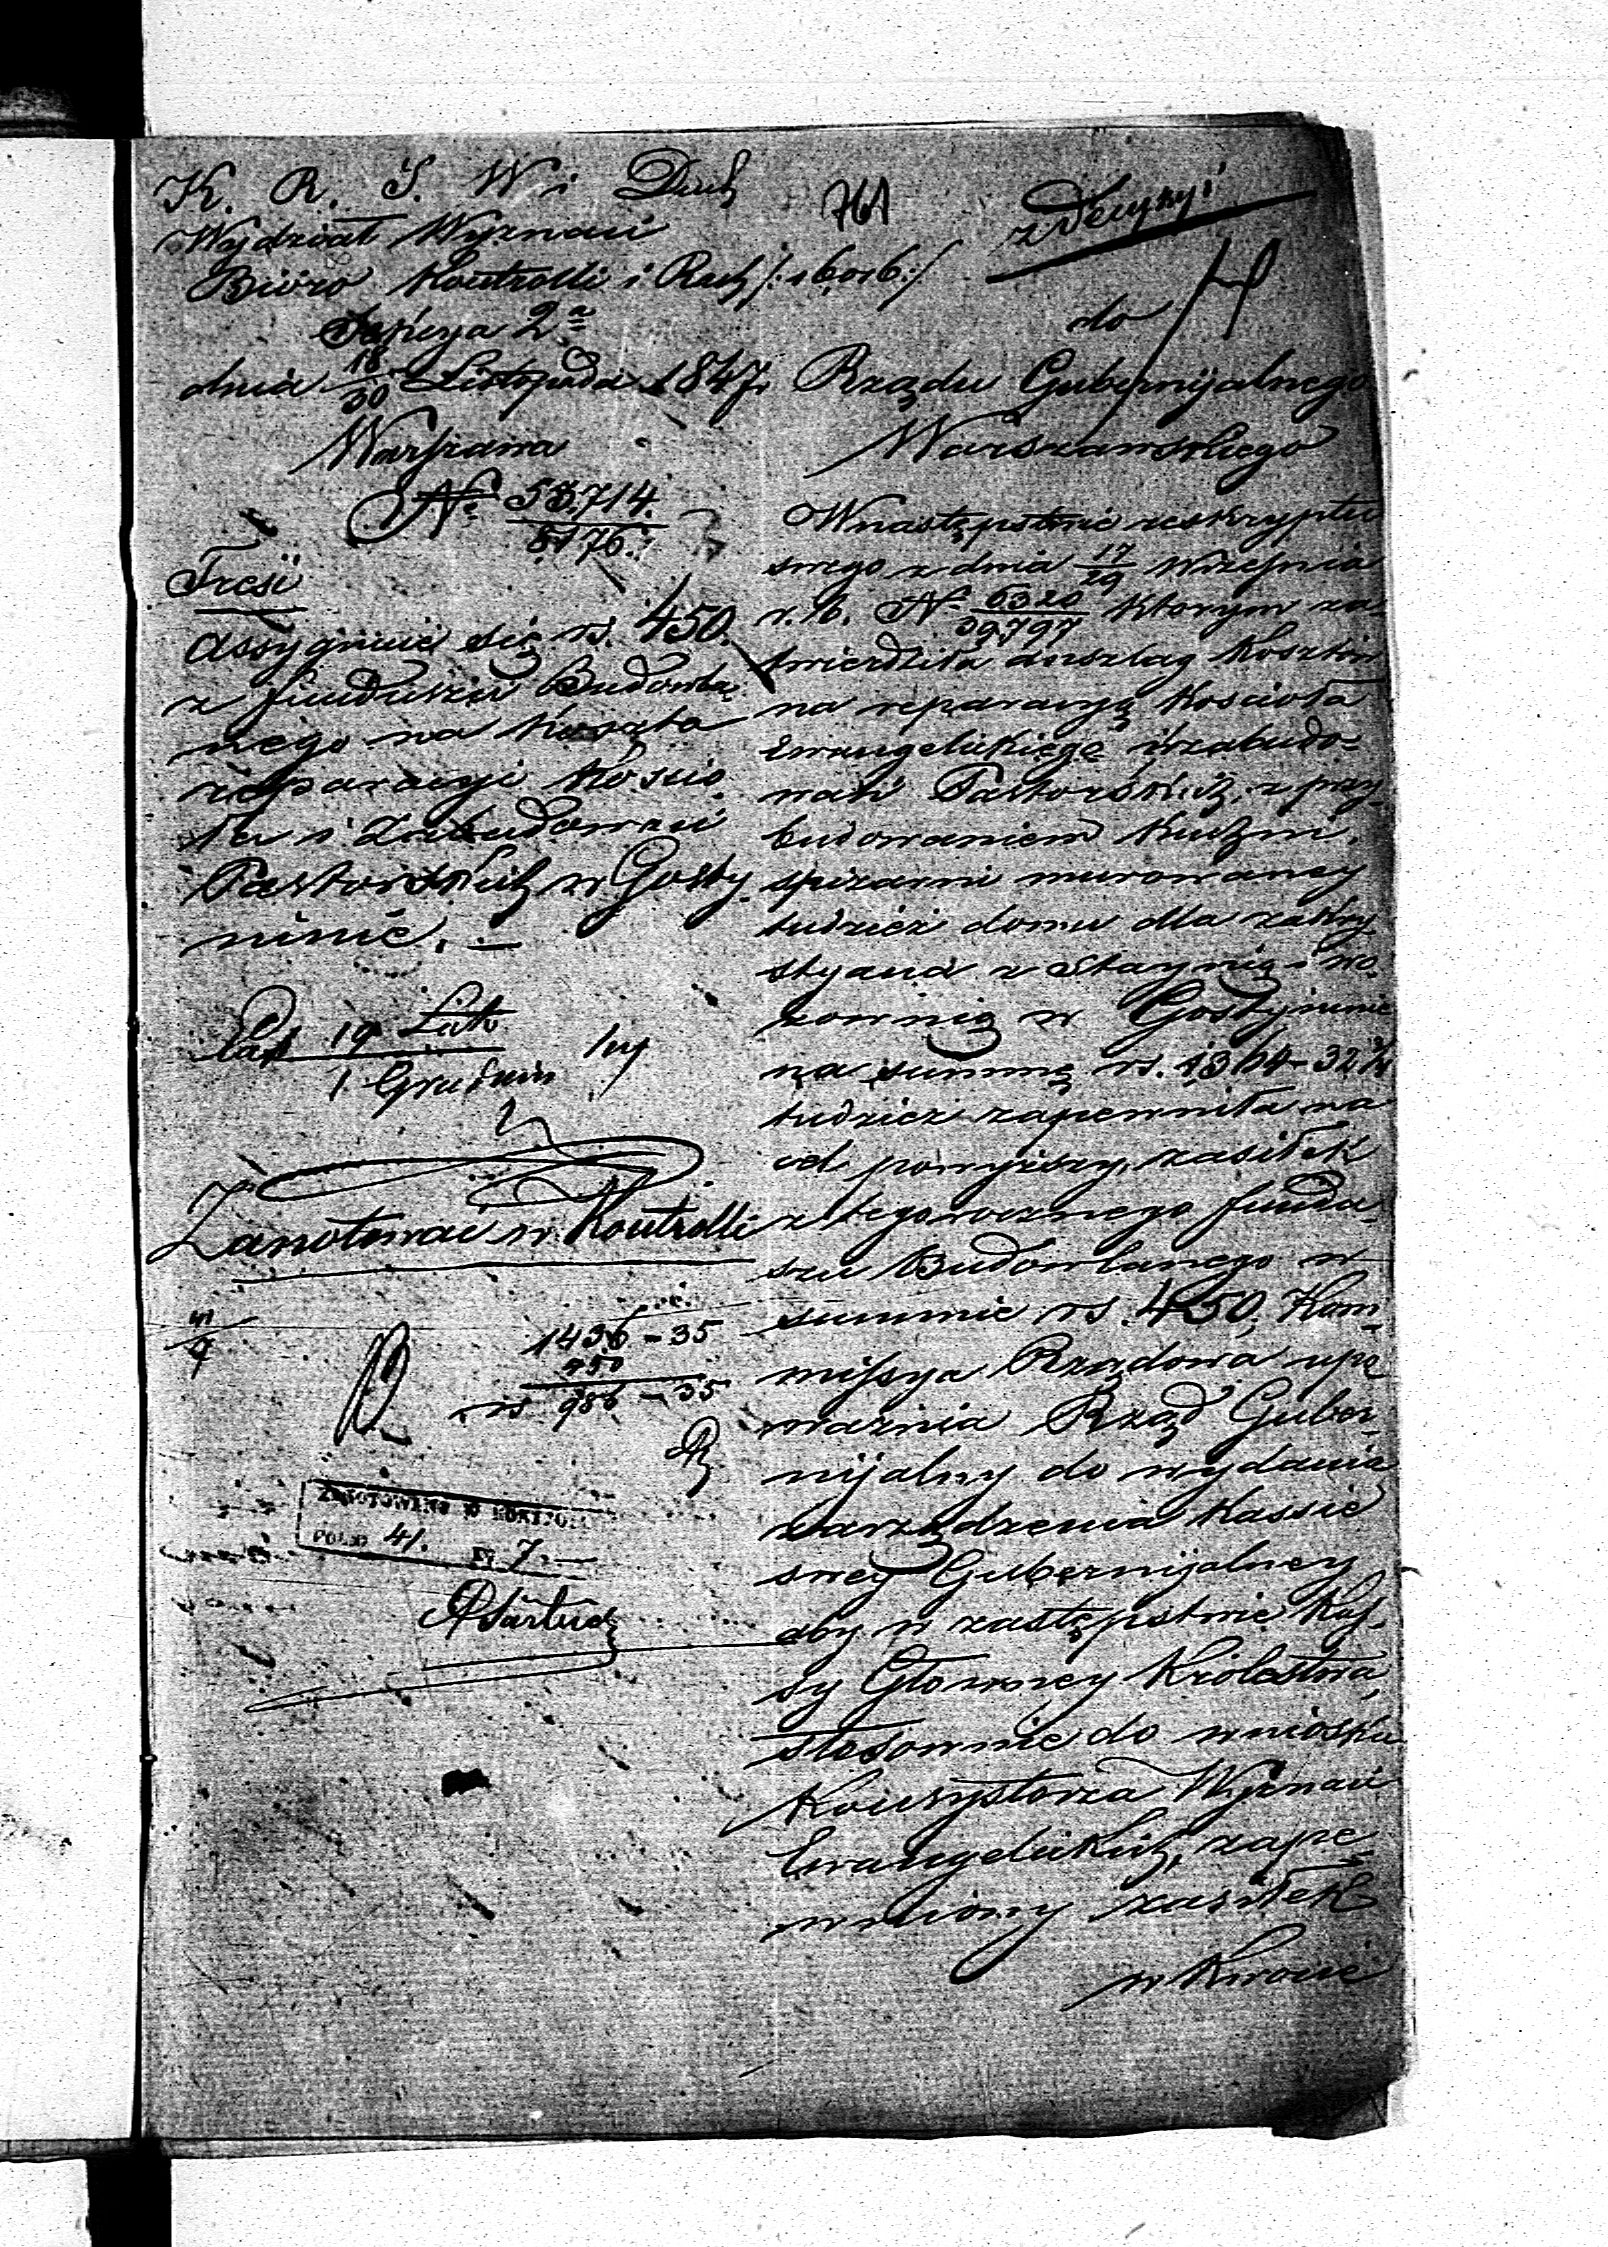 K. R. S. W i Duch
Wydział Wyznań
Biuro Kontrolli i Rach /:16016:/
Sekcya 2ª
dnia 18/30 Listopada 1847.
Warszawa
N. 53,714. / 5176.
Treść
Assygnuie się rs. 450.
z funduszu Budowla
nego na koszta
reparacyi kościo
ła i Zabudowań
Pastorskich w Gosty
ninie. —
19 List
1 Grudnia
Zanotować w Kontrolli
1436 - 35
450
rs 986 - 35
ZANOTOWANO W KONTROLI
POLIO 41. N 7.
761
z Decyzyi
do
Rządu Gubernijalnego
Warszawskiego
W następstwie reskryptu
swego z dnia 17/29 Września
r. b. N 6320/39797 którym za
twierdziła anszlag kosztów
na reparacyą kościoła
Ewangelickiego i zabudo-
wań Pastorskich, z przy
budowaniem kuchni,
spiżarni murowaney
tudzież domu dla zakry
styana z Staynią i wo
zownią w Gostyninie
na summę rs. 1364 - 32½
tudzież zapewniła na
cel powyższy, zasiłek
z tegorocznego fundu-
szu Budowlanego w
summie rs. 450, Kom-
missya Rządowa upo
ważnia Rząd Guber-
nijalny do wydania
zarządzenia Kassie
swey Gubernijalney
aby w zastępstwie Kas-
sy Głowney Królestwa,
stosownie do wniosku
Konsystorza Wyznań
Ewangelickich, zape-
wniony zasiłek
w kwocie